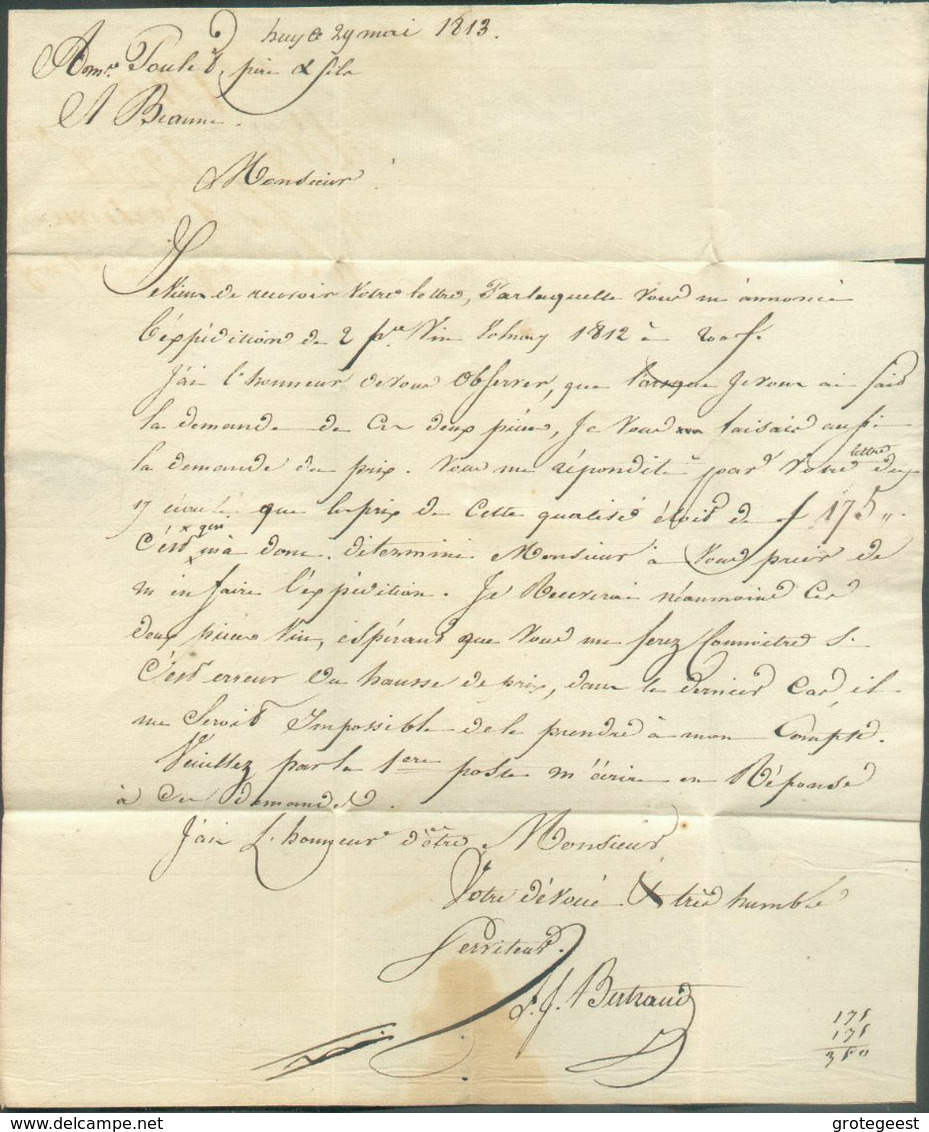 huy le 29 mai 1813.
A Mr. Poulet, père & fils
A Beaune.
Monsieur
Je viens de recevoir votre lettre, Par laquelle vous m'annoncé
l'éxpédition de 2 pces. Vin Volnay 1812 à 200 f.
J'ai l'honneur de vous observer, que lorsque Je vous ai fait
la demande de ces deux pièces, Je vous faisais aussi
la demande du prix. Vous me répondite par votre lettre du
que le prix de cette qualité étoit de f 175 "
C'est qui m'a donc déterminé Monsieur à vous prier de
m'en faire l'éxpédition. Je Recevrai néanmoins ces
deux pièces Vin, espérant que vous me ferez Connoitre si
C'est erreur ou hausse de prix, dans le dernier Cas, il
me Seroit Impossible de le prendre à mon Compte.
Veuillez par la 1ere poste m'écrire en Réponse
à ces demandes.
J'ai L'honneur d'être Monsieur
Votre dévoué & très humble
Serviteur.
Bertrand
175
175
350
delcampe.net
grotegeest